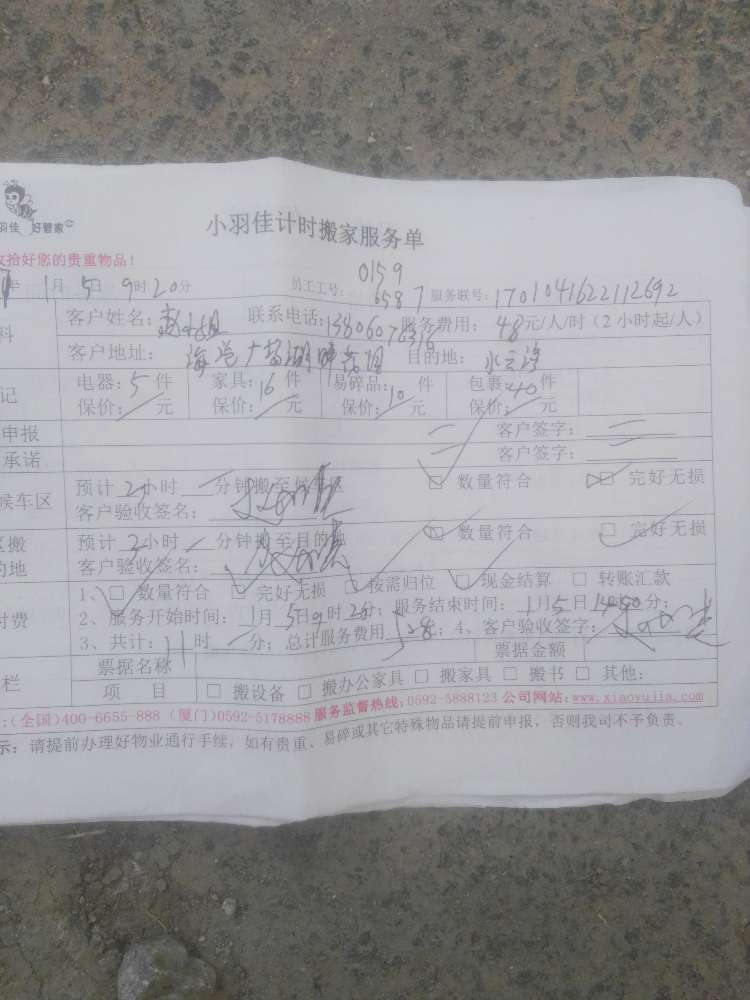 羽佳 好管家
小羽佳计时搬家服务单
收拾好您的贵重物品!
年 1月5日9时20分 员工工号: 0159 6587 服务联号: 1701041622112692
客户姓名: 联系电话: 服务费用: 48元/人/时(2小时起/人)
客户地址: 目的地: 水云湾
电器: 5 件 家具: 16 件 易碎品: 10 件 包裹: 40 件
保价: 元 保价: 元 保价: 元 保价: 元
记
申报 客户签字:
承诺 客户签字:
预计 2小时 分钟搬至候车区 □ 数量符合 □ 完好无损
候车区
客户验收签名:
预计 2小时 分钟搬至目的地 □ 数量符合 □ 完好无损
区搬
的地 客户验收签名:
1、□ 数量符合 □ 完好无损 □ 按需归位 □ 现金结算 □ 转账汇款
付费 2、服务开始时间: 1月5日9时20分; 服务结束时间: 1月5日14
3、共计: 11时 分; 总计服务费用 528; 4、客户验收签字:
票据名称 票据金额
栏 项 目 □ 搬设备 □ 搬办公家具 □ 搬家具 □ 搬书 □ 其他:
:(全国)400-6655-888 (厦门)0592-5178888 服务监督热线:0592-5888123 公司网站:www.xiaoyujia.com
示: 请提前办理好物业通行手续, 如有贵重、易碎或其它特殊物品请提前申报, 否则我司不予负责。